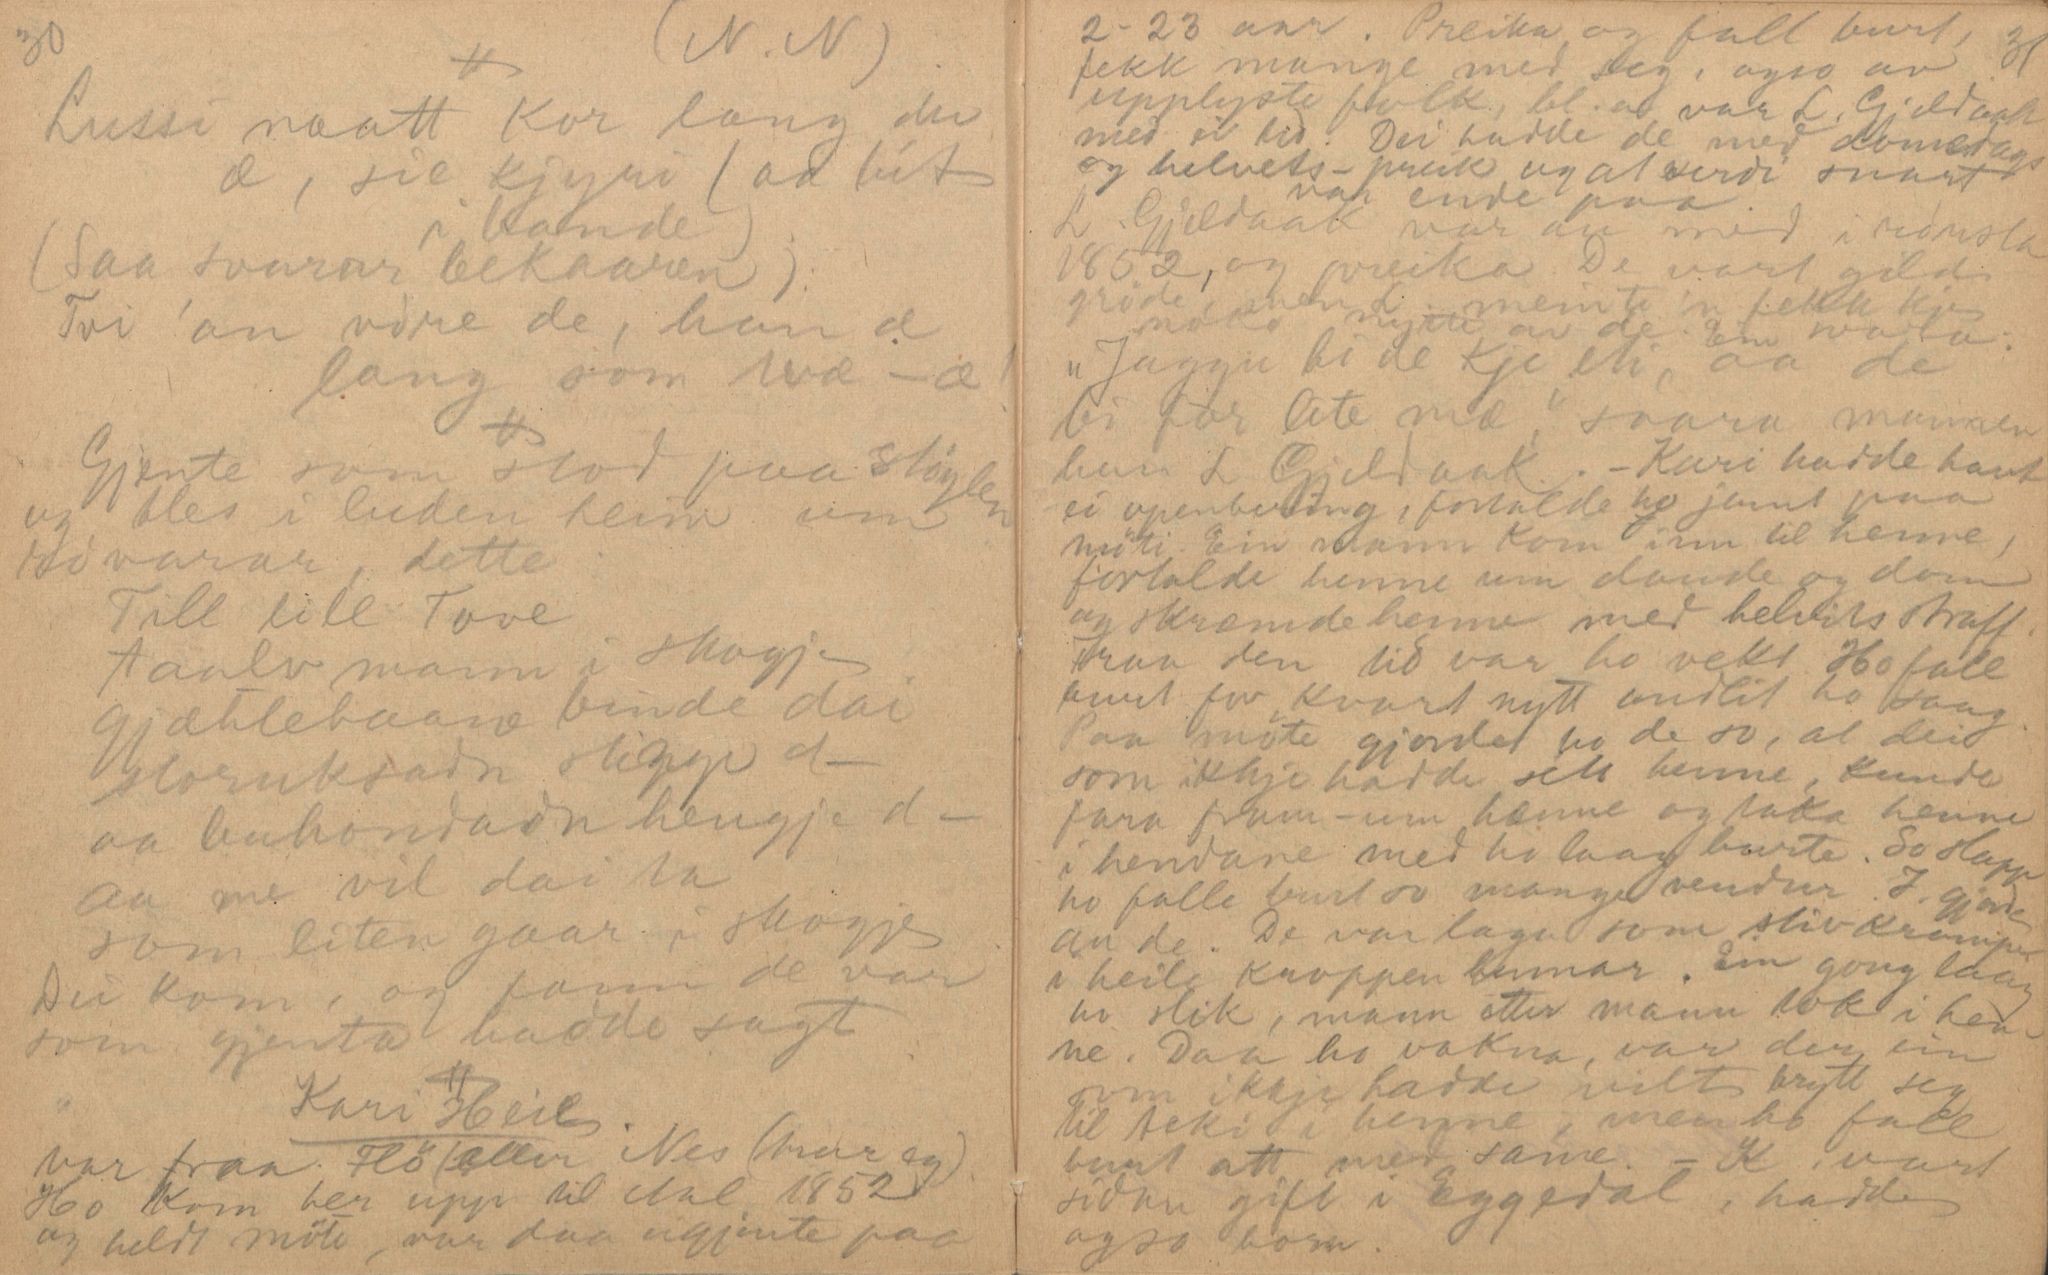 30
(N. N)
Lussi naatt kor lang du
æ, sie kjyri (aa bit
i bande)
(Saa svarar bekaaren).
Tvi 'an vöre de, han æ
lang som tvæ-æ!
Gjente som stod paa stöylen
og bles i luden heim um
rövarar, dette
Till till Tove
taalv mann i skogje
gjætlebaane binde dai
storuksadn stigge d-
aa buhondadn hengje d-
aa me vil dai ta
som liten gaar i skogje
Dei kom, og fann de var
som gjenta hadde sagt
Kari Heie.
var fraa Flö (eller Nes (trur eg)
Ho kom her upp til Aal 1852
og heldt möte, var daa ugjente paa
31
2-23 aar. Preika og fall burt,
fekk mange med seg, ogso av
upplyste folk, bl. a. var L. Gjeldaak
med ei tid. Dei hadde de med domedags
og helvets-preik og at verdi snart
var ende paa.
L. Gjeldaak var au med i
1852, og preika. De vart gild
gröde, men L. meinte 'n fekk kje
noko nytte av de. Ein svara:
"Jaggu bi de kje eti, aa de
bi for lite mæ", svara mannen
hans L Gjeldaak. - Kari hadde havt
ei openbering, fortalde ho jamt paa
möti. Ein mann kom inn til henne,
fortalde henne um daude og dom
og skræmde henne med helvits straff.
Fraa den tid var ho vekt. Ho fall
burt for kvart nytt andlit ho saag.
Paa möte gjorde ho de so, at dei
som ikkje hadde sett henne, kunde
fara fram-um henne og taka henne
i hendane med ho laag burte. So slapp
ho falle burt so mange vendur. J. gjorde
au de. De var laga som stivkrampe
i heile kroppen hennar. Ein gong laag
ho slik, mann etter mann tok i hen-
ne. Daa ho vakna, var der ein
som ikkje hadde vilt brytt seg
til teki i henne, men ho fall
burt att med same. - K. vart
sidan gift i Eggedal, hadde
ogso born.